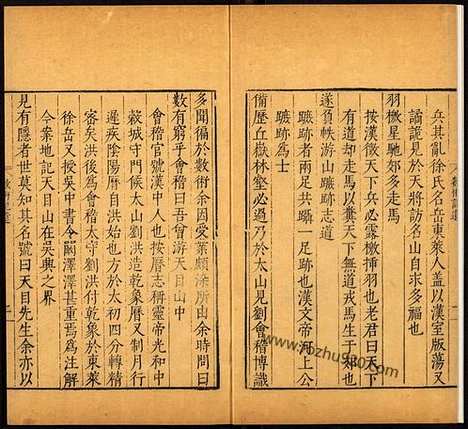 兵其亂徐氏名岳東萊人蓋以漢室版蕩又
譎詭見於天將訪名山自求多福也
羽檄星馳郊多走馬
按漢徵天下兵必露檄揷羽也老君曰天下
有道却走馬以糞天下無道戎馬生于郊也
遂負帙游山躡跡志道
躡跡者兩足共躡一足跡也漢文帝河上公
躡跡爲士
備歷丘嶽林壑必過乃於太山見劉會稽博識
多聞徧於數術余因受業頗涉所由余時問曰
數有窮乎會稽曰吾曾游天目山中
會稽官號漢中人也按曆志稱靈帝光和中
穀城守門候太山劉洪造乾象曆又制月行
遲疾陰陽曆自洪始也方於太初四分轉精
密矣洪後爲太守劉洪付乾象於東萊
徐岳又授吳中書令闞澤澤甚重焉爲注解
今案地記天目山在吳興之界
見有隱者世莫知其名號曰天目先生余亦以